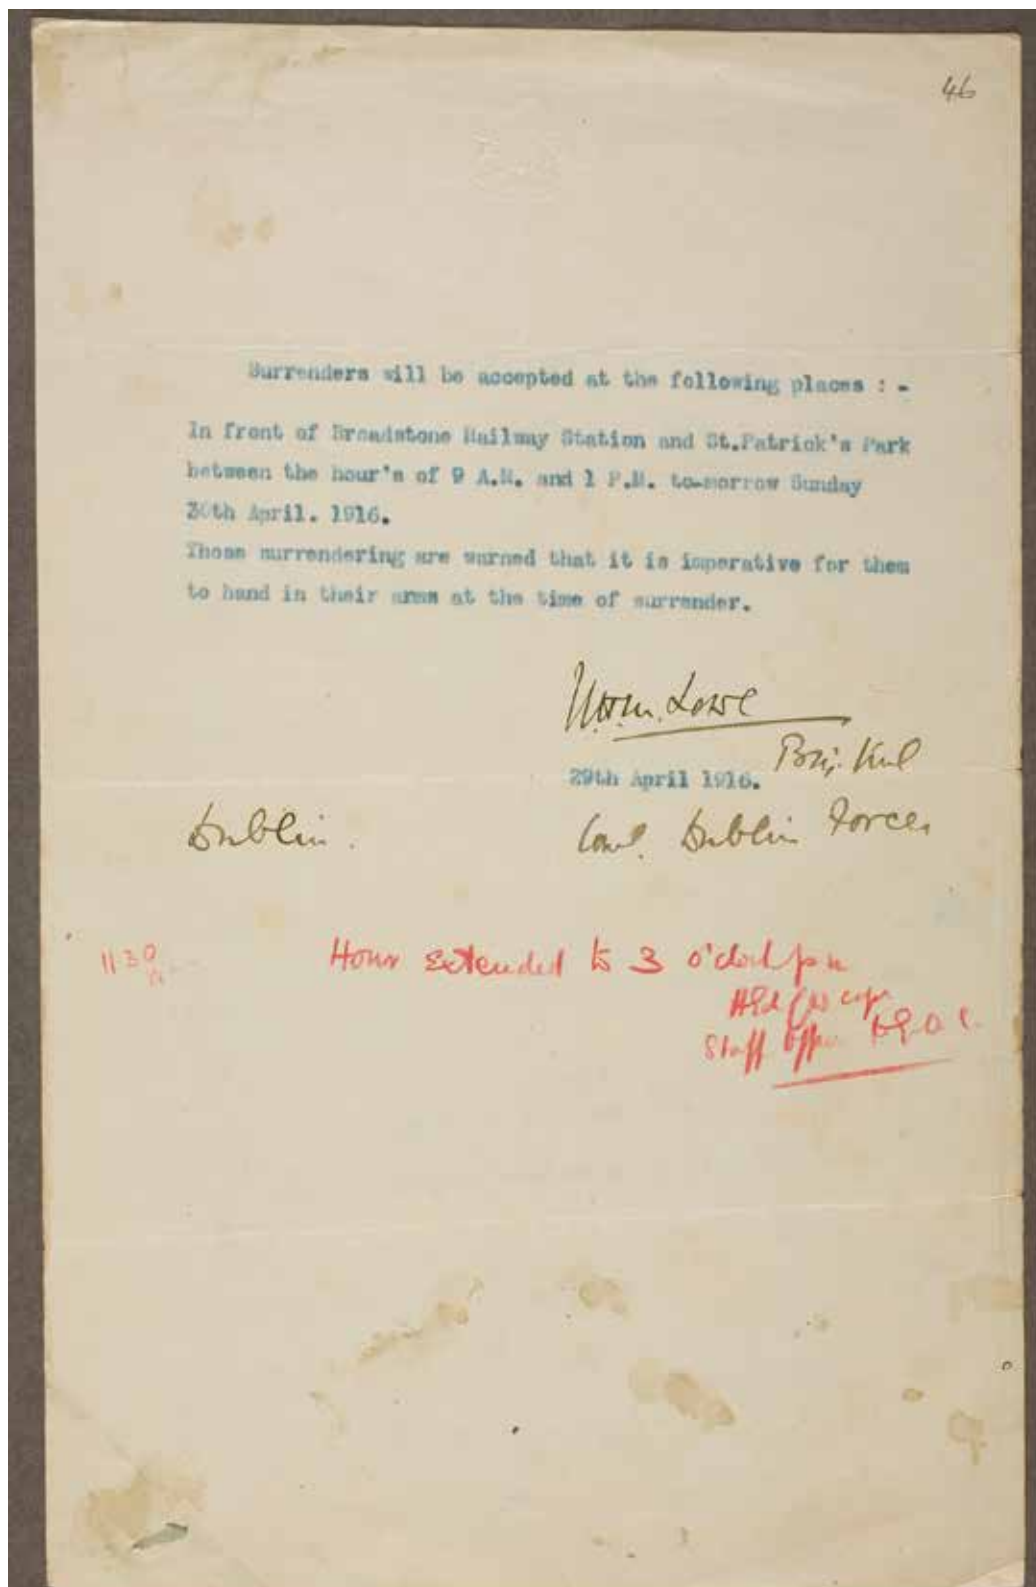 46
Surrenders will be accepted at the following places : -
In front of Broadstone Railway Station and St.Patrick's Park
between the hour's of 9 A.M. and 1 P.M. to-morrow Sunday
30th April. 1916.
Those surrendering are warned that it is imperative for them
to hand in their arms at the time of surrender.
W.H.M. Lowe
Brig. Genl
29th April 1916.
Dublin. Comd. Dublin Forces
1130 Hour Extended to 3 o'clock pm
Staff